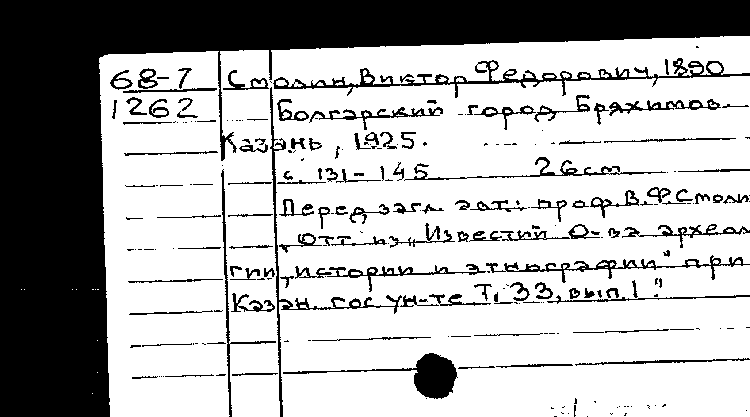 68-7 Смолин, Виктор Федорович, 1890
1262 Болгарский город Бряхимов.
Казань, 1925.
с. 131-145 26 см
Перед загл. авт.: проф. В.Ф.Смоли
„Отт. из „Известий О-ва археол
гии, истории и этнографии" при
Казан. гос. ун-те Т. 33, вып. 1."